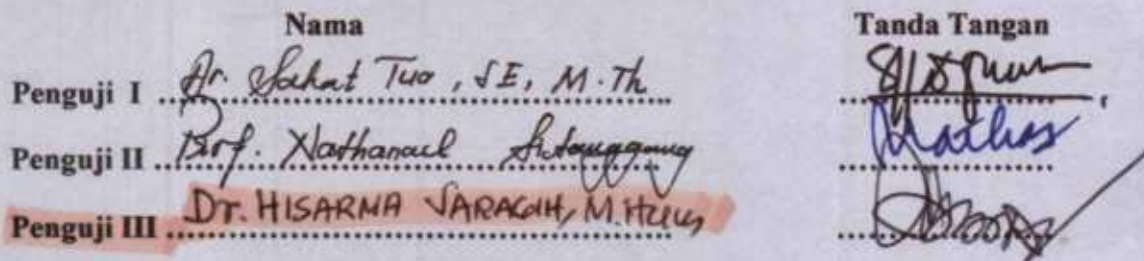 Nama Tanda Tangan
Penguji I Dr. Sahat Tuo, SE, M.Th
Penguji II Prof. Nathanael Sitanggang
Penguji III DT. HISARMA SARAGIH, M.Hum